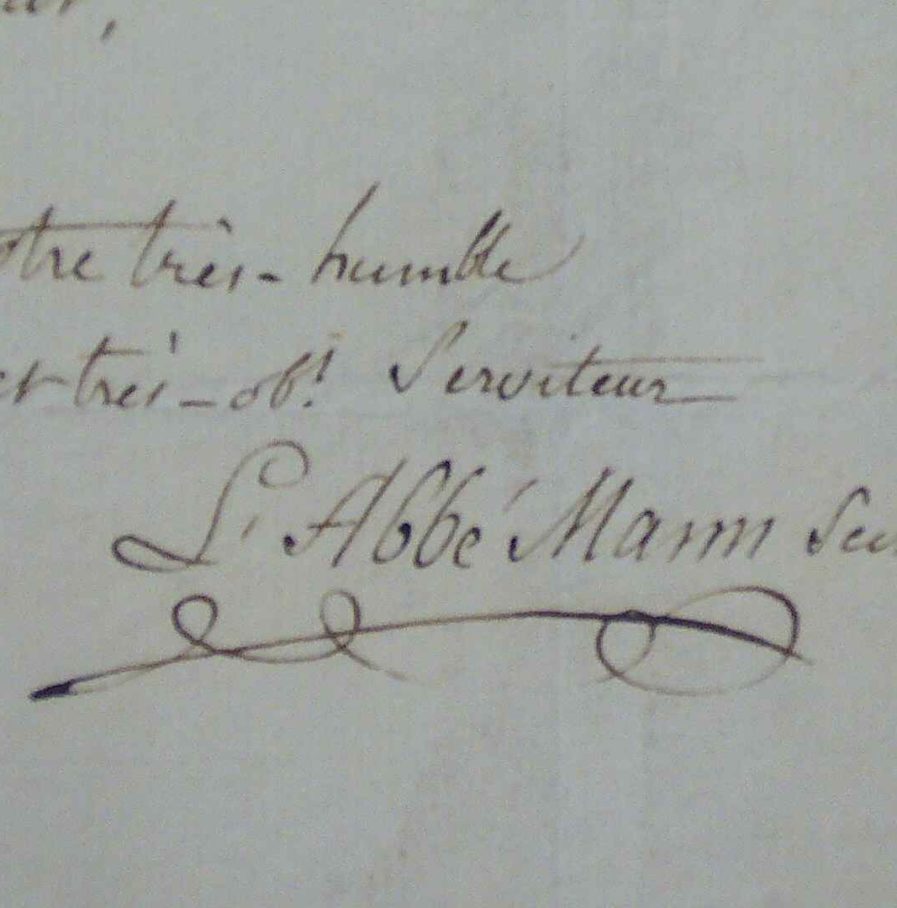 otre très-humble
et très-obt. Serviteur
L'Abbé Mann